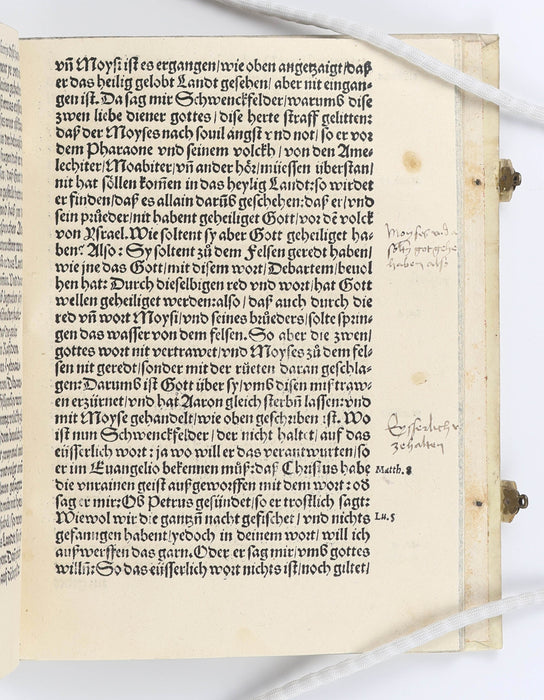 vn̄ Moysi ist es ergangen/ wie oben angetzaigt/ daß
er das heilig gelobt Landt gesehen/ aber nit eingan-
gen ist. Da sag mir Schwenckfelder/ warumb dise
zwen liebe diener gottes/ dise herte straff gelitten:
daß der Moyses nach souil angst vnd not/ so er vor
dem Pharaone vnd seinem volckh/ von den Ame-
lechiter/ Moabiter/ vn̄ ander hör/ müessen überstan/
nit hat söllen kom̄en in das heylig Landt: so wirdet
er finden/ daß es allain darūb geschehen: daß er/ vnd
sein prüeder/ nit habent geheiliget Gott/ vor dē volck
von Ysrael. Wie soltent sy aber Gott geheiliget ha-
benꝰ Also: Sy soltent zů dem Felsen geredt haben/
wie jne das Gott/ mit disem wort/ Debartem/ beuol
hen hat: Durch dieselbigen red vnd wort/ hat Gott
wellen geheiliget werden: also/ daß auch durch die
red vn̄ wort Moysi/ vnd seines brüeders/ solte sprin-
gen das wasser von dem felsen. So aber die zwen/
gottes wort nit vertrawet/ vnd Moyses zů dem fel-
sen nit geredt/ sonder mit der rüeten daran geschla-
gen: Darumb ist Gott über sy/ vmb disen mißtraw-
en erzürnet/ vnd hat Aaron gleich sterbn̄ lassen: vnd
mit Moyse gehandelt/ wie oben geschriben ist. Wo
ist nun Schwenckfelder/ der nicht haltet/ auf das
eüsserlich wort: ja wo will er das verantwurten/ so
er im Euangelio bekennen müß: daß Christus habe
die vnrainen geist außgeworffen mit dem wort: od
sag er mir: Ob Petrus gesündet/ so er trostlich sagt:
Wiewol wir die gantzn̄ nacht gefischet/ vnd nichts
gefangen habent/ yedoch in deinem wort/ will ich
außwerffen das garn. Oder er sag mir/ vmb gottes
willn̄: So das eüsserlich wort nichts ist/ noch giltet/
Moyses
got gehe
haben also
Matth. 8
Eysserlich
zehalten
Lu. 5